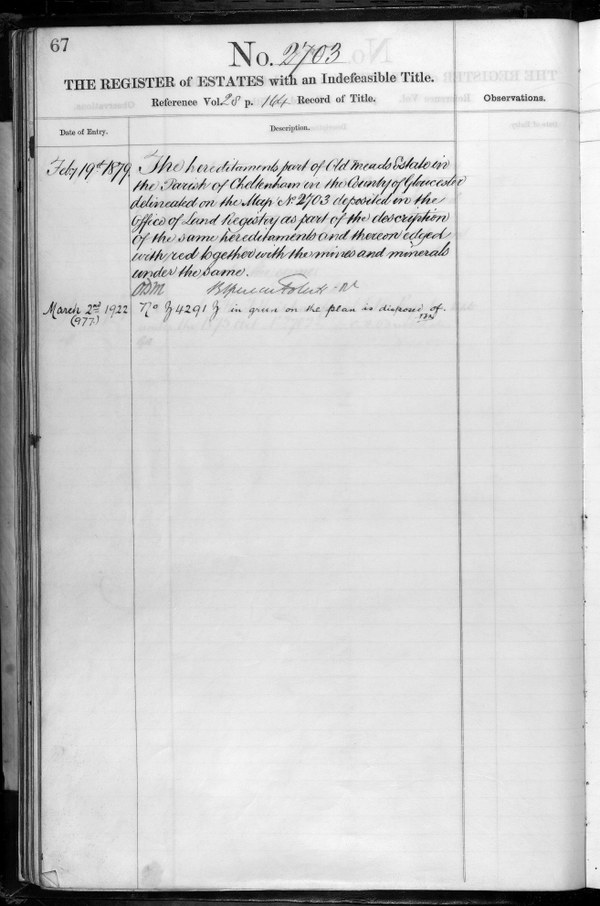 67
No. 2703
THE REGISTER of ESTATES with an Indefeasible Title.
Reference Vol. 28 p. 164 Record of Title.
Observations.
Date of Entry.
Description.
Feby 19th 1879
The hereditaments part of Old Meads Estate in
the Parish of Cheltenham in the County of Gloucester
delineated on the Map No 2703 deposited in the
Office of Land Registry as part of the description
of the same hereditaments and thereon edged
with red together with the mines and minerals
under the same.
March 2nd 1922
(977)
No Z 4291 Z in green on the plan is disposed of.